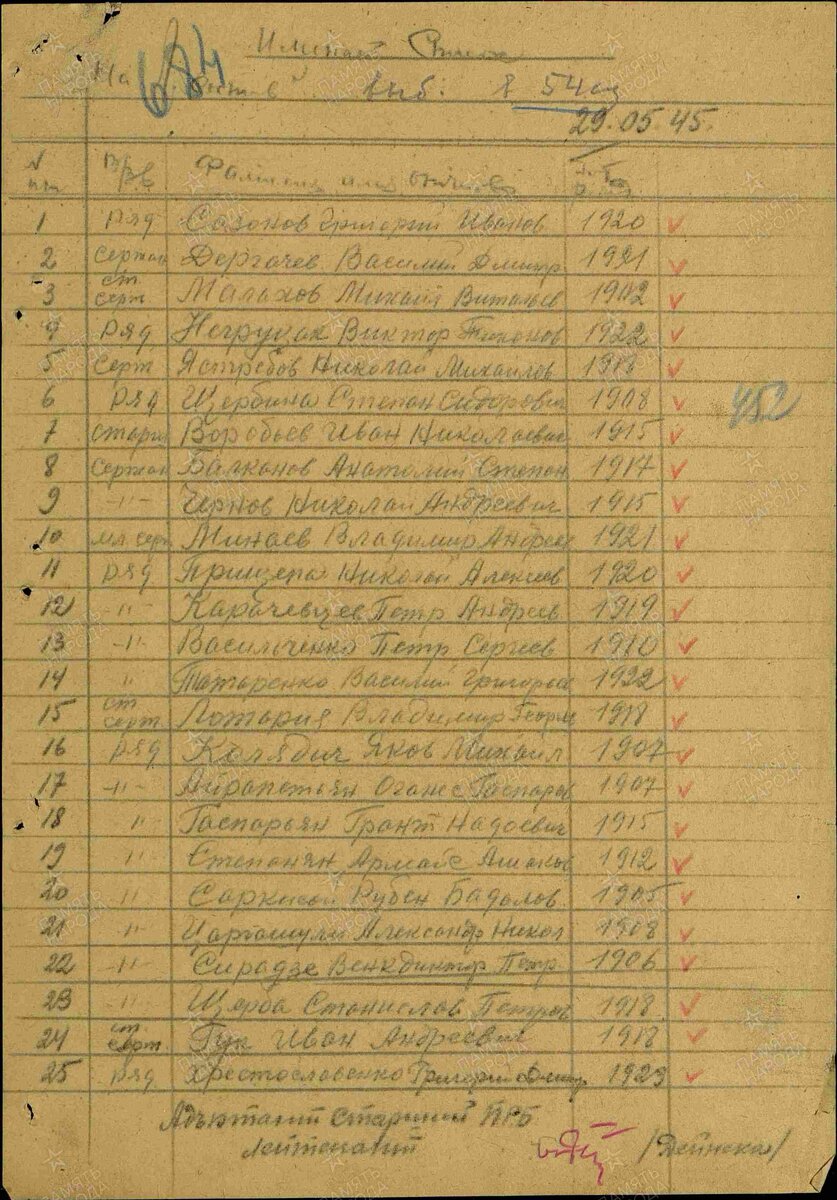 Именной Список
684
На выб. в 54 сд
29.05.45.
№ пп в/зв Фамилия имя отчество г.
1 ряд Сазонов Григорий Иванов 1920
2 сержан Дергачев Василий Дмитр 1921
3 ст серж Малахов Михаил Витальев 1902
4 ряд Негруцак Виктор Тихонов 1922
5 Серж Ястребов Николай Михайлов 1918
6 ряд Щербина Степан Сидорович 1908
452
7 старш Воробьев Иван Николаевич 1915
8 Сержан Балканов Анатолий Степан 1917
9 -"- Чернов Николай Андреевич 1915
10 мл серж Минаев Владимир Андрее 1921
11 ряд Прищепа Николай Алексеев 1920
12 -"- Карачевцев Петр Андреев 1919
13 -"- Васильченко Петр Сергеев 1910
14 " Татаренко Василий Григорьев 1922
15 ст серж Лотария Владимир Георг 1918
16 ряд Колядич Яков Михаил 1907
17 -"- Айрапетьян Оганес Гаспаров 1907
18 " Гаспарьян Грант Надоевич 1915
19 " Степанян Армаис Ашаков 1912
20 " Саркисов Рубен Бадалов 1905
21 " Александр Никол 1908
22 -"- Сирадзе Венкдиктор Петр 1906
23 " Щерба Станислав Петров 1918
24 ст серж. Гук Иван Андреевич 1918
25 ряд Христославенко Григорий Дмит 1923
Адъютант Старший ПРБ
Лейтенант /Дейнека/